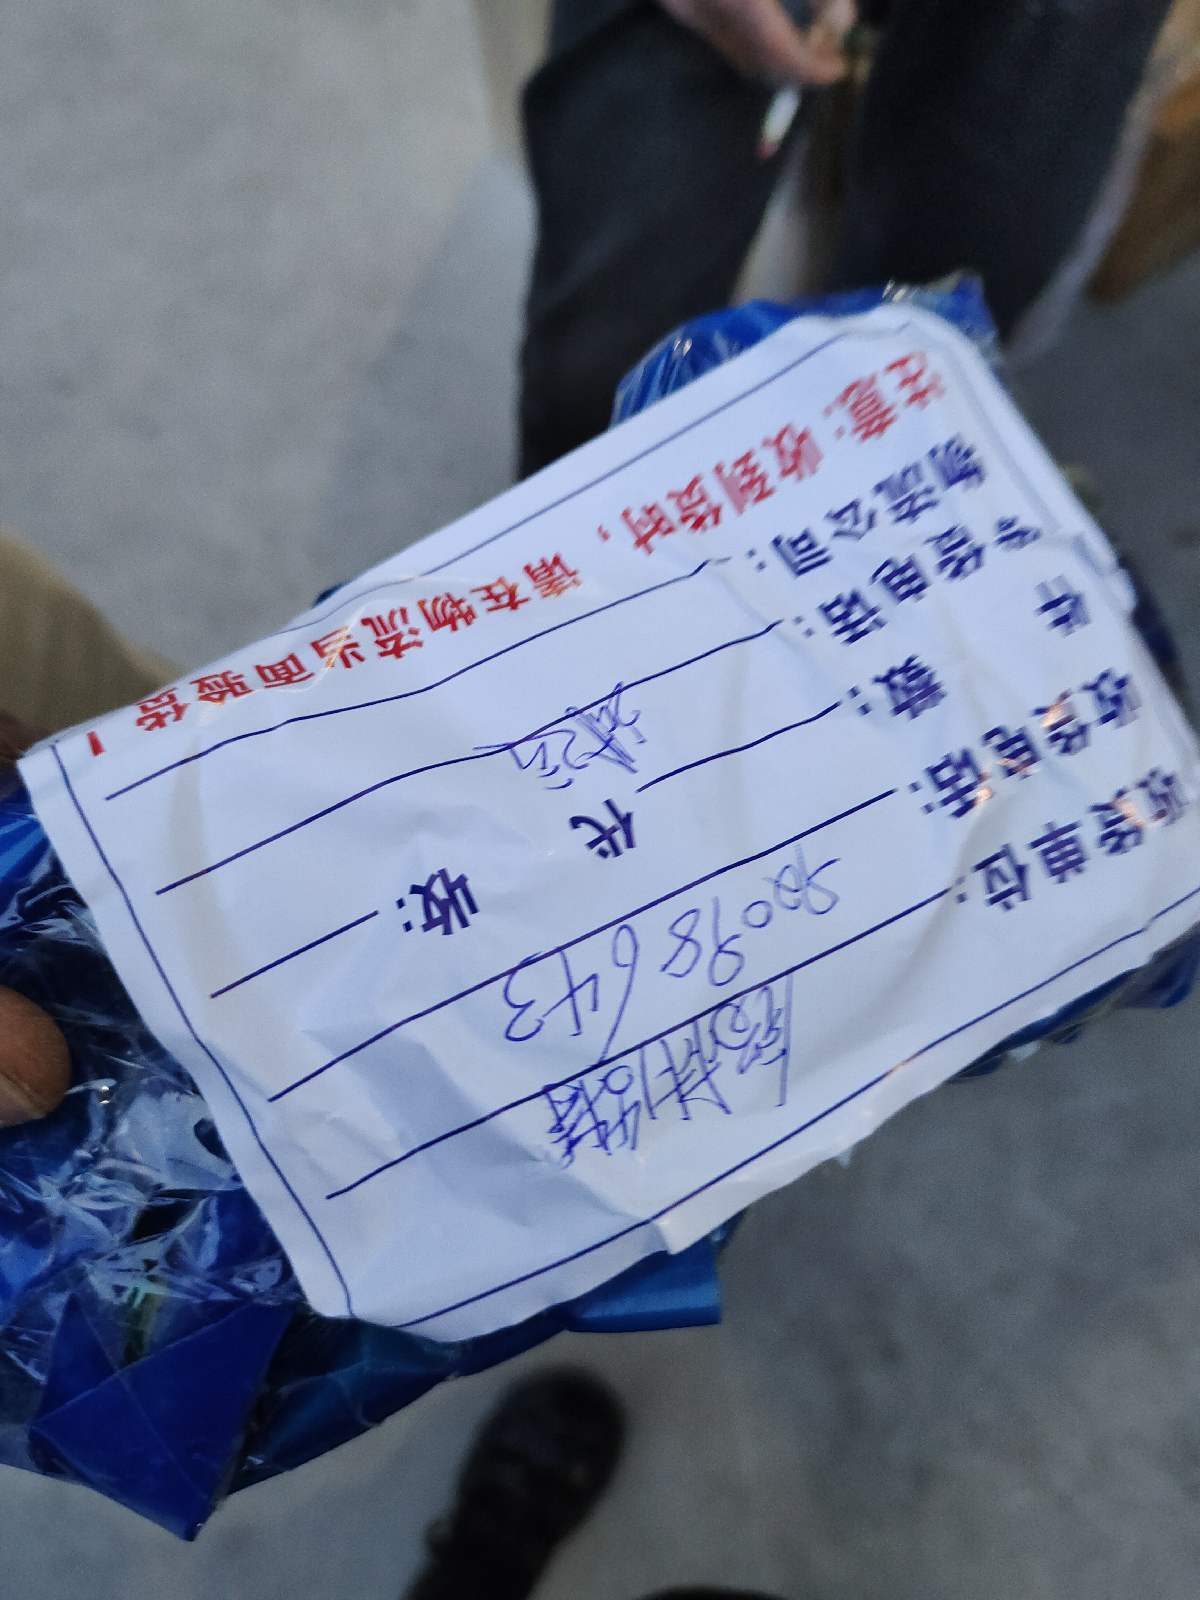 收货单位:
收货电话: 8098643
件 数: 代 收:
发货电话:
物流公司:
注意: 收到货时, 请在物流当面验货